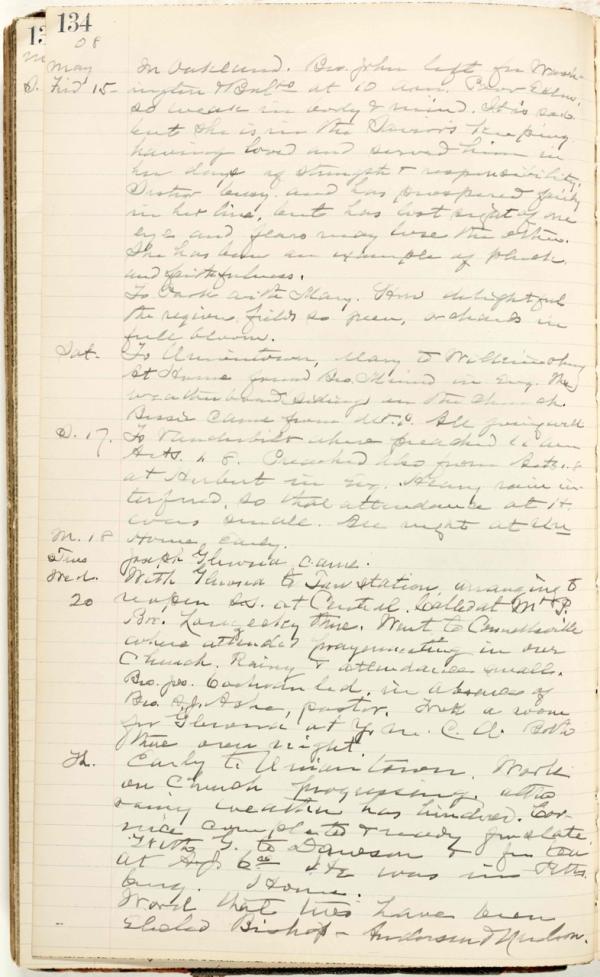 134
08
May In Oakland. Bro. John left for Wash-
Frid 15- ington & Balto at 10 a.m. Poor
so weak in body & mind. It is sad
but she is in the Savior's keeping
having loved and served him in
her days of strength & responsibility.
Sister busy and has prospered fairly
in her line, but has lost sight of one
eye and fears may lose the other.
She has been an example of pluck
and faithfulness.
To with Mary. How delightful
the region, fields so green, orchards in
full bloom.
Sat. To Uniontown, Mary to Wilkinsburg
At Home found Bro. in Eve. The
weatherboard siding on the church
Bessie came from All going well
S. 17. To Vanderbilt where preached 11 am
Acts. 1. 8. Preached also from Acts 1.8
at in Eve. Heavy rain in-
terfered, so that attendance at it
was small. All night at
M. 18 Home, early.
Tues Joseph came.
Wed. With to station, arranging to
20 reopen S.S. at Central. Called at Mt. P.
Bro. there. Went to Connellsville
where attended prayermeeting in our
Church. Rainy & attendance small.
Bro. Jos. Cochran led, in absence of
Bro. pastor. Took a room
for at Y. M. C. A. Both
there over night.
Th. Early to Uniontown. Work
on Church progressing, altho
rainy weather has hindered. Cor-
nice completed & ready for slate.
With G. to Dawson & for tea
at was in Pitts
burg. Home.
Word that two have been
Elected Bishop - Anderson & Nuelson.